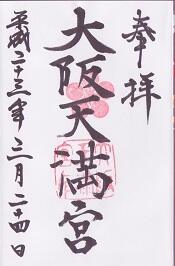 奉拝
大阪天満宮
平成二十三年三月二十四日